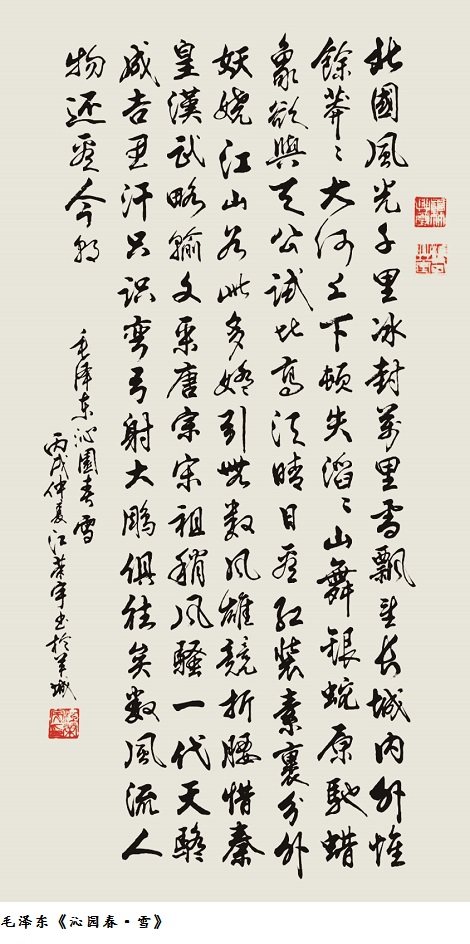 北國風光千里冰封萬里雪飄望长城内外惟
餘莽〻大河上下頓失滔〻山舞銀蛇原馳蜡
象欲與天公試比高须晴日看红裝素裹分外
妖娆江山如此多娇引無数风雄競折腰惜秦
皇漢武略输文采唐宗宋祖稍风騷一代天驕
成吉思汗只识弯弓射大鵰俱往矣数風流人
物还看今朝
毛泽东沁園春雪
丙戌仲夏江荣宇书於羊城
毛泽东《沁园春·雪》